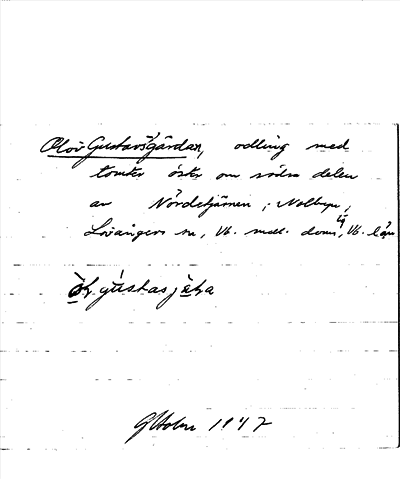 Olov Gustavsgårdan, odling med
tomter öster om södra delen
av Nördstjärnen i Nolbyn,
Lövångers sn, Vb. mell. doms., Vb. län
gústasjɛ̀ḷa
G Holm 1947